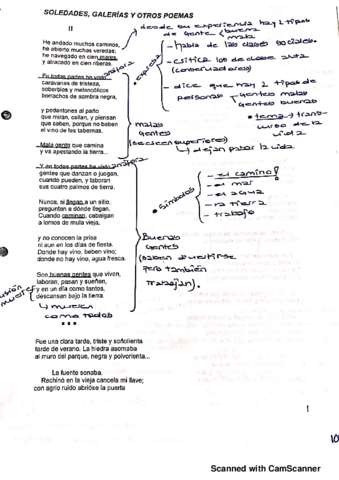 SOLEDADES, GALERÍAS Y OTROS POEMAS
II
desde su experiencia hay 2 tipos
de gente (buena
mala
He andado muchos caminos,
he abierto muchas veredas;
he navegado en cien mares,
y atracado en cien riberas.
- habla de las clases sociales.
- critica los de clase alta
(conservadores)
En todas partes he visto anáfora
caravanas de tristeza,
soberbios y melancólicos
borrachos de sombra negra,
- dice que hay 2 tipos de
personas gentes malas
gentes buenas
y pedantones al paño
que miran, callan, y piensan
que saben, porque no beben
el vino de las tabernas.
malas
gentes
(se creen superiores)
→ dejan pasar la vida
tema → trans-
curso de la
vida
Mala gente que camina
y va apestando la tierra...
Y en todas partes he visto anáfora
gentes que danzan o juegan,
cuando pueden, y laboran
sus cuatro palmos de tierra.
símbolos
- el camino
- el mar
- el agua
- la tierra
- trabajo
Nunca, si llegan a un sitio,
preguntan a dónde llegan.
Cuando caminan, cabalgan
a lomos de mula vieja,
y no conocen la prisa
ni aun en los días de fiesta.
Donde hay vino, beben vino;
donde no hay vino, agua fresca.
Buenas
gentes
(saben divertirse
pero también
trabajan).
Son buenas gentes que viven,
laboran, pasan y sueñan,
y en un día como tantos,
descansan bajo la tierra.
→ mueren
como todos
* * *
Fue una clara tarde, triste y soñolienta
tarde de verano. La hiedra asomaba
al muro del parque, negra y polvorienta...
La fuente sonaba.
Rechinó en la vieja cancela mi llave;
con agrio ruido abrióse la puerta
1
10
Scanned with CamScanner